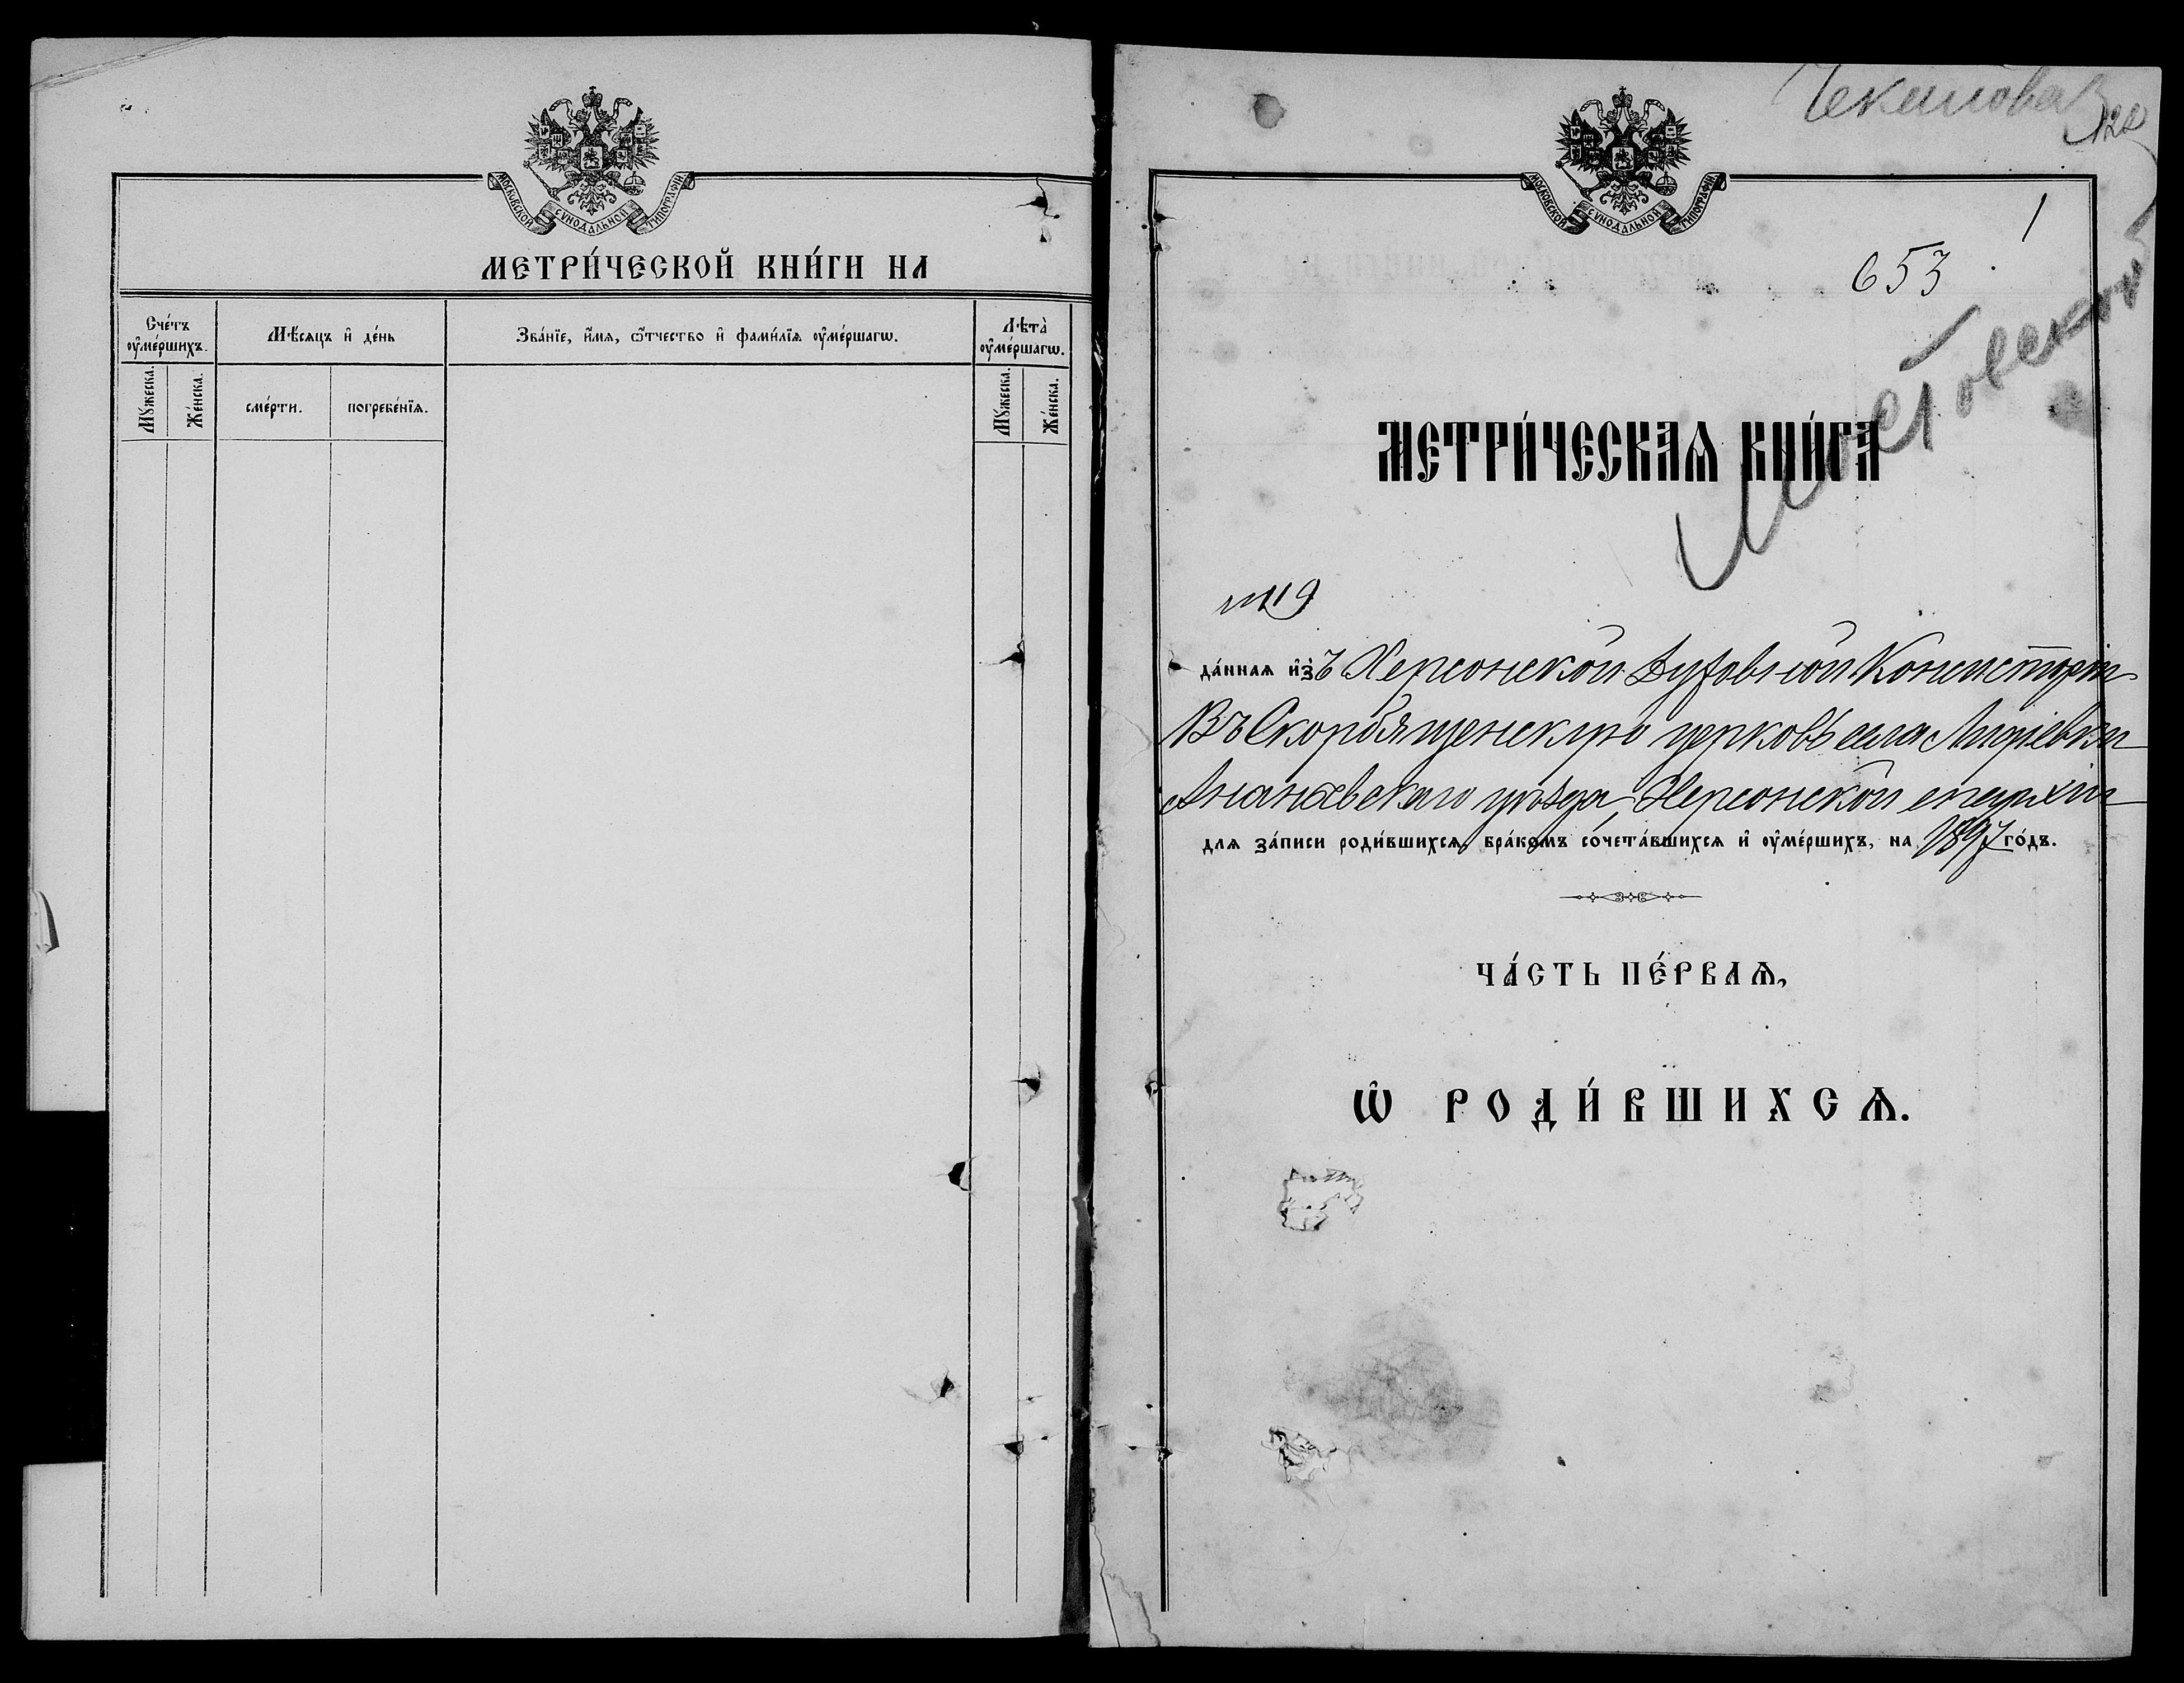 МОСКОВСКОЙ СѴНОДАЛЬНОЙ ТИПОГРАФІИ
МЕТРИ́ЧЕСКОЙ КНИ́ГИ НА
Сче́тъ оу҆ме́ршихъ.
Мѣ́сяцъ и҆ де́нь
Зва́нїе, и҆́мѧ, ѻ҆́тчество и҆ фами́лїѧ оу҆ме́ршагѡ.
Лѣта̀ оу҆ме́ршагѡ.
Мꙋжеска.
Же́нска.
сме́рти.
погребе́нїѧ.
Мꙋжеска.
Же́нска.
653
1
МОСКОВСКОЙ СѴНОДАЛЬНОЙ ТИПОГРАФІИ
МЕТРИ́ЧЕСКАѦ КНИ́ГА
да́ннаѧ и҆зъ Херсонской Духовной Консисторіи
Въ Скорбященскую церковь села
Ананьевскаго уѣзда, Херсонской епархіи
для за́писи роди́вшихсѧ, бра́комъ сочета́вшихсѧ и҆ оу҆ме́ршихъ, на 1897 го́дъ.
ЧА́СТЬ ПЕ́РВАѦ,
Ѽ РОДИ́ВШИХСѦ.